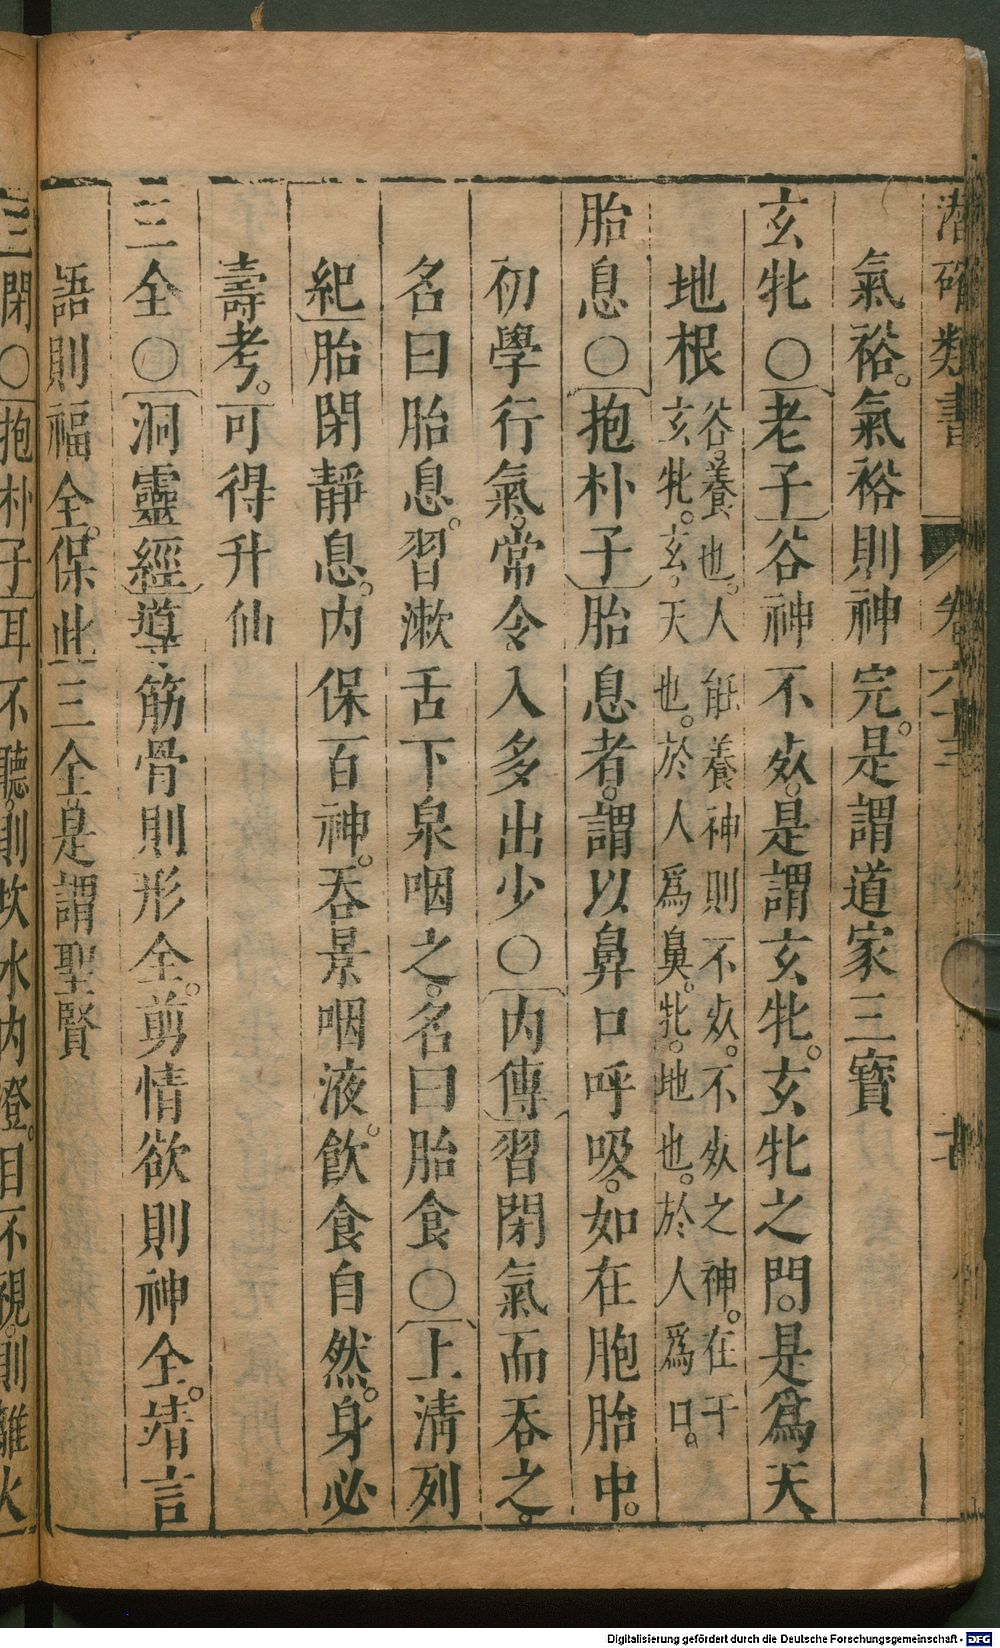 潛確類書 卷六十三
氣裕。氣裕則神完。是謂道家三寶
玄牝○〔老子〕谷神不𣦸。是謂玄牝。玄牝之門。是爲天
地根 谷。養也。人能養神則不𣦸。不𣦸之神。在于
玄牝。玄，天也。於人爲鼻。牝。地也。於人爲口。
胎息○〔抱朴子〕胎息者。謂以鼻口呼吸。如在胞胎中。
初學行氣。常令入多出少○〔内傳〕習閉氣而吞之。
名曰胎息。習漱舌下泉咽之。名曰胎食○〔上清列
紀〕胎閉靜息。内保百神。吞景咽液。飲食自然。身必
壽考。可得升仙
三全○〔洞靈經〕導筋骨則形全。剪情欲則神全。靖言
語則福全。保此三全是謂聖賢
三閉○〔抱朴子〕耳不聽。則坎水内澄。目不視。則離火
Digitalisierung gefördert durch die Deutsche Forschungsgemeinschaft - DFG